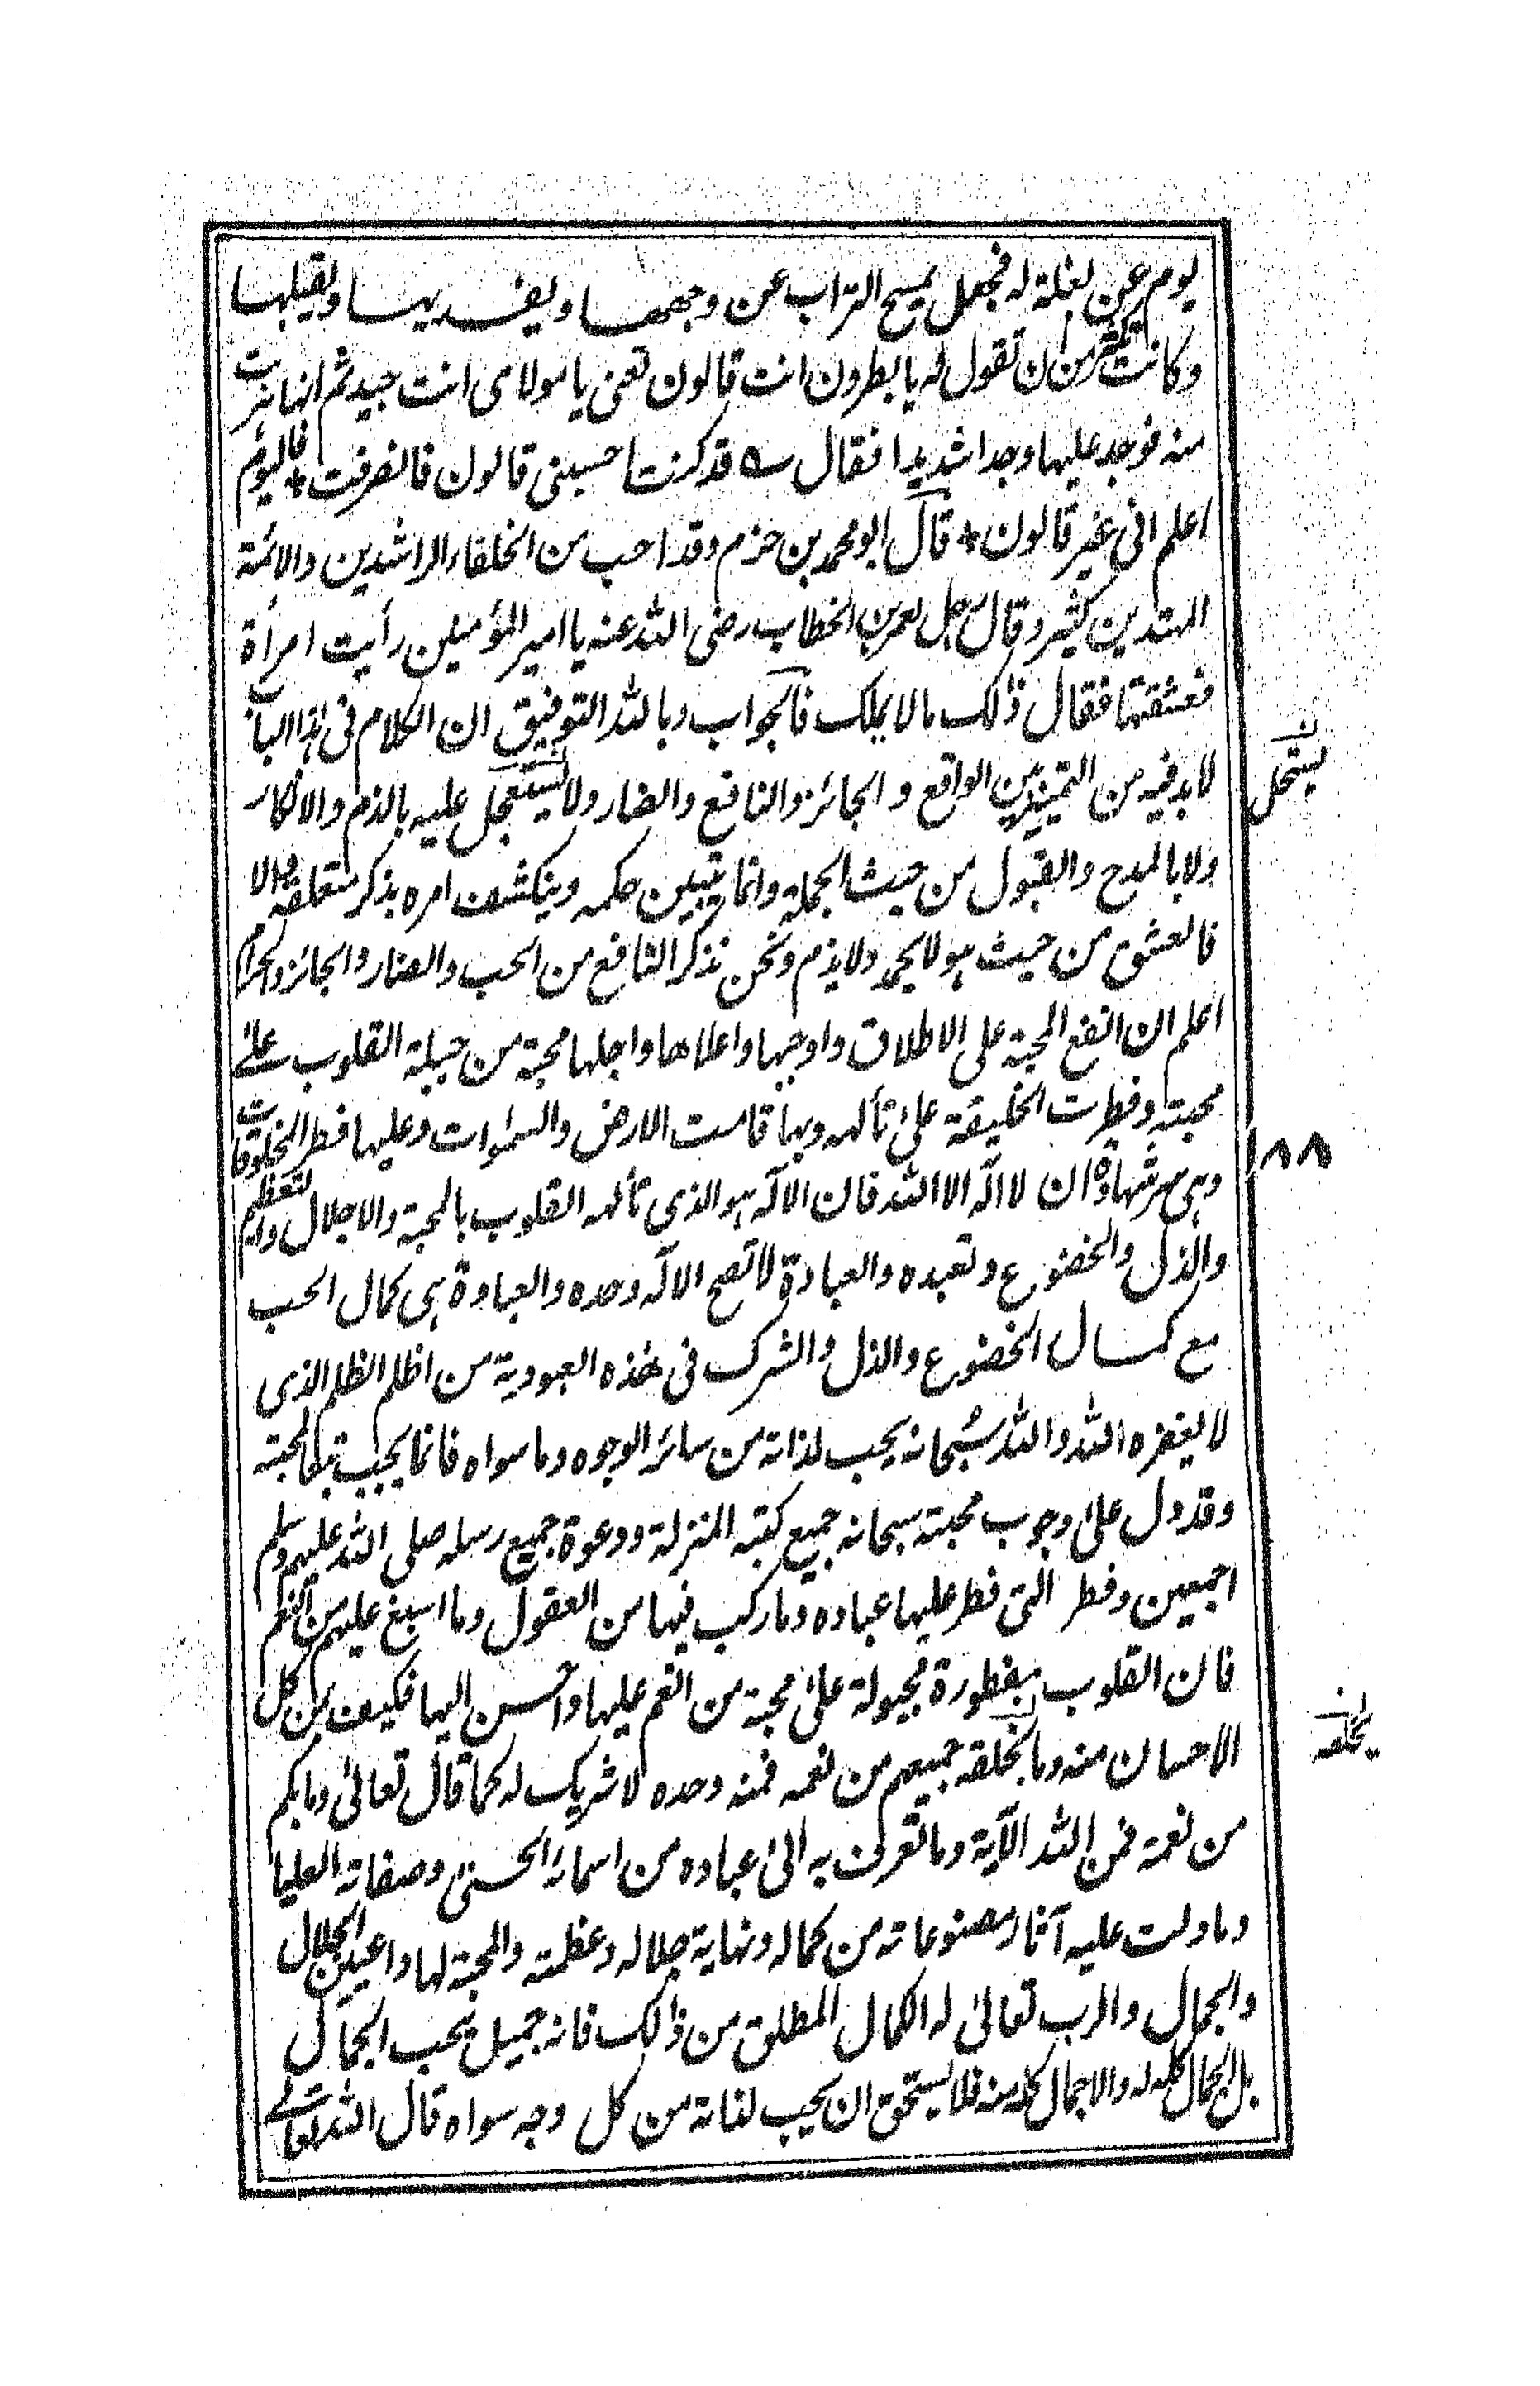 يوم عن بغلة له فجعل يمسح التراب عن وجهها ويفديها ويقبلها
وكانت تكثر من ان تقول له يا بطرون انت قالون تعنى يا مولاى انت جيد ثم انها هربت
منه فوجد عليها وجدا شديدا فقال قد كنت احسبنى قالون فانصرفت * فاليوم
اعلم انى غير قالون * قال ابو محمد بن حزم وقد احب من الخلفاء الراشدين والائمة
المهتدين كثير وقال رجل لعمر بن الخطاب رضى الله عنه يا امير المؤمنين رأيت امرأة
فعشقتها فقال ذلك ما لا يملك فالجواب وبالله التوفيق ان الكلام فى هذا الباب
لا بد فيه من التمييز بين الواقع والجائز والنافع والضار ولا يستعجل عليه بالذم والانكار
ولا بالمدح والقبول من حيث الجملة وانما يتبين حكمه وينكشف امره بذكر متعلقه والا
فالعشق من حيث هو لا يحمد ولا يذم ونحن نذكر النافع من الحب والضار والجائز والحرام
اعلم ان انفع المحبة على الاطلاق واوجبها واعلاها واجلها محبة من جبلة القلوب على
محبته وفطرت الخليقة على تألهه وبها قامت الارض والسموات وعليها فطر المخلوقات
وهى سر شهادة ان لا اله الا الله فان الاله هو الذى تألهه القلوب بالمحبة والاجلال والتعظيم
والذل والخضوع وتعبده والعبادة لا تصح الا له وحده والعبادة هى كمال الحب
مع كمال الخضوع والذل والشرك فى هذه العبودية من اظلم الظلم الذى
لا يغفره الله والله سبحانه يحب لذاته من سائر الوجوه وما سواه فانما يحب تبعا لمحبته
وقد دل على وجوب محبته سبحانه جميع كتبه المنزلة ودعوة جميع رسله صلى الله عليهم وسلم
اجمعين وفطر التى فطر عليها عباده وما ركب فيها من العقول وما اسبغ عليهم من النعم
فان القلوب مفطورة مجبولة على محبة من انعم عليها واحسن اليها فكيف بمن كل
الاحسان منه وما بخلقه جميعهم من نعمه فمنه وحده لا شريك له كما قال تعالى وما بكم
من نعمة فمن الله الآية وما تعرف به الى عباده من اسمائه الحسنى وصفاته العليا
وما دلت عليه آثار مصنوعاته من كماله ونهاية جلاله وعظمته والمحبة لها داعيين الجلال
والجمال والرب تعالى له الكمال المطلق من ذلك فانه جميل يحب الجمال
بل الجمال كله له والاجمال كله منه فلا يستحق ان يحب لذاته من كل وجه سواه قال الله تعالى
١٨٨
يخلقه